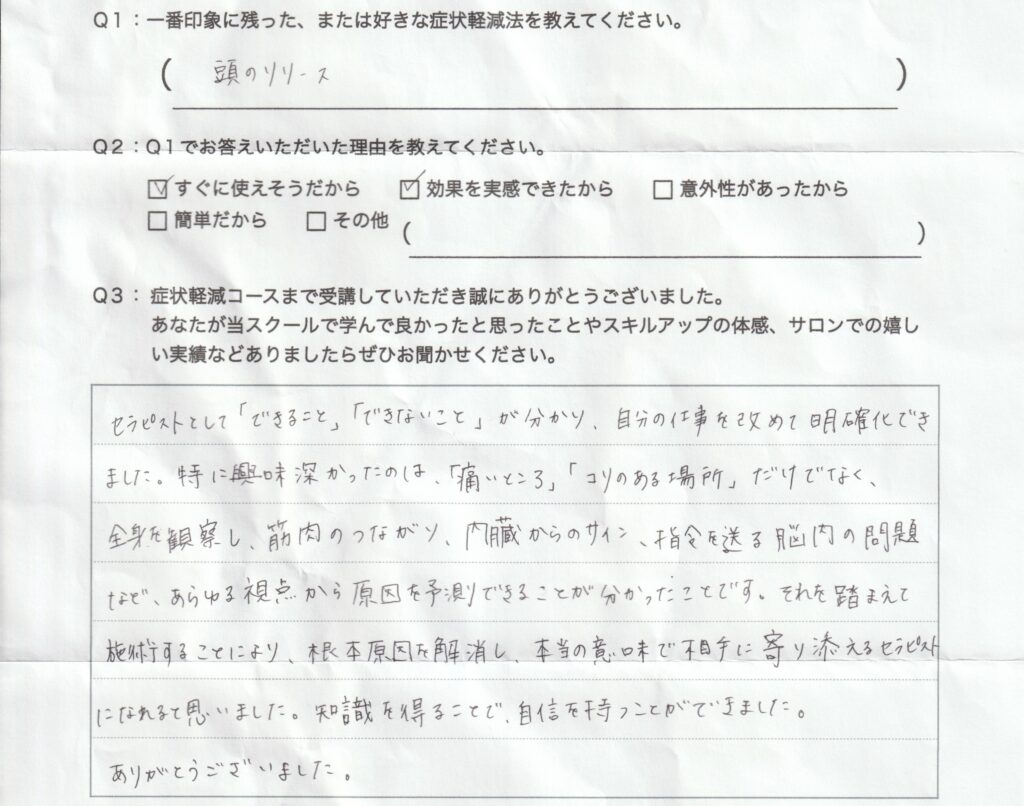 Q1：一番印象に残った、または好きな症状軽減法を教えてください。
( 頭のリリース )
Q2：Q1でお答えいただいた理由を教えてください。
☑すぐに使えそうだから ☑効果を実感できたから □意外性があったから
□簡単だから □その他 ( )
Q3：症状軽減コースまで受講していただき誠にありがとうございました。
あなたが当スクールで学んで良かったと思ったことやスキルアップの体感、サロンでの嬉し
い実績などありましたらぜひお聞かせください。
セラピストとして「できること」「できないこと」が分かり、自分の仕事を改めて明確化でき
ました。特に興味深かったのは、「痛いところ」「コリのある場所」だけでなく、
全身を観察し、筋肉のつながり、内臓からのサイン、指令を送る脳内の問題
など、あらゆる視点から原因を予測できることが分かったことです。それを踏まえて
施術することにより、根本原因を解消し、本当の意味で相手に寄り添えるセラピスト
になれると思いました。知識を得ることで、自信を持つことができました。
ありがとうございました。